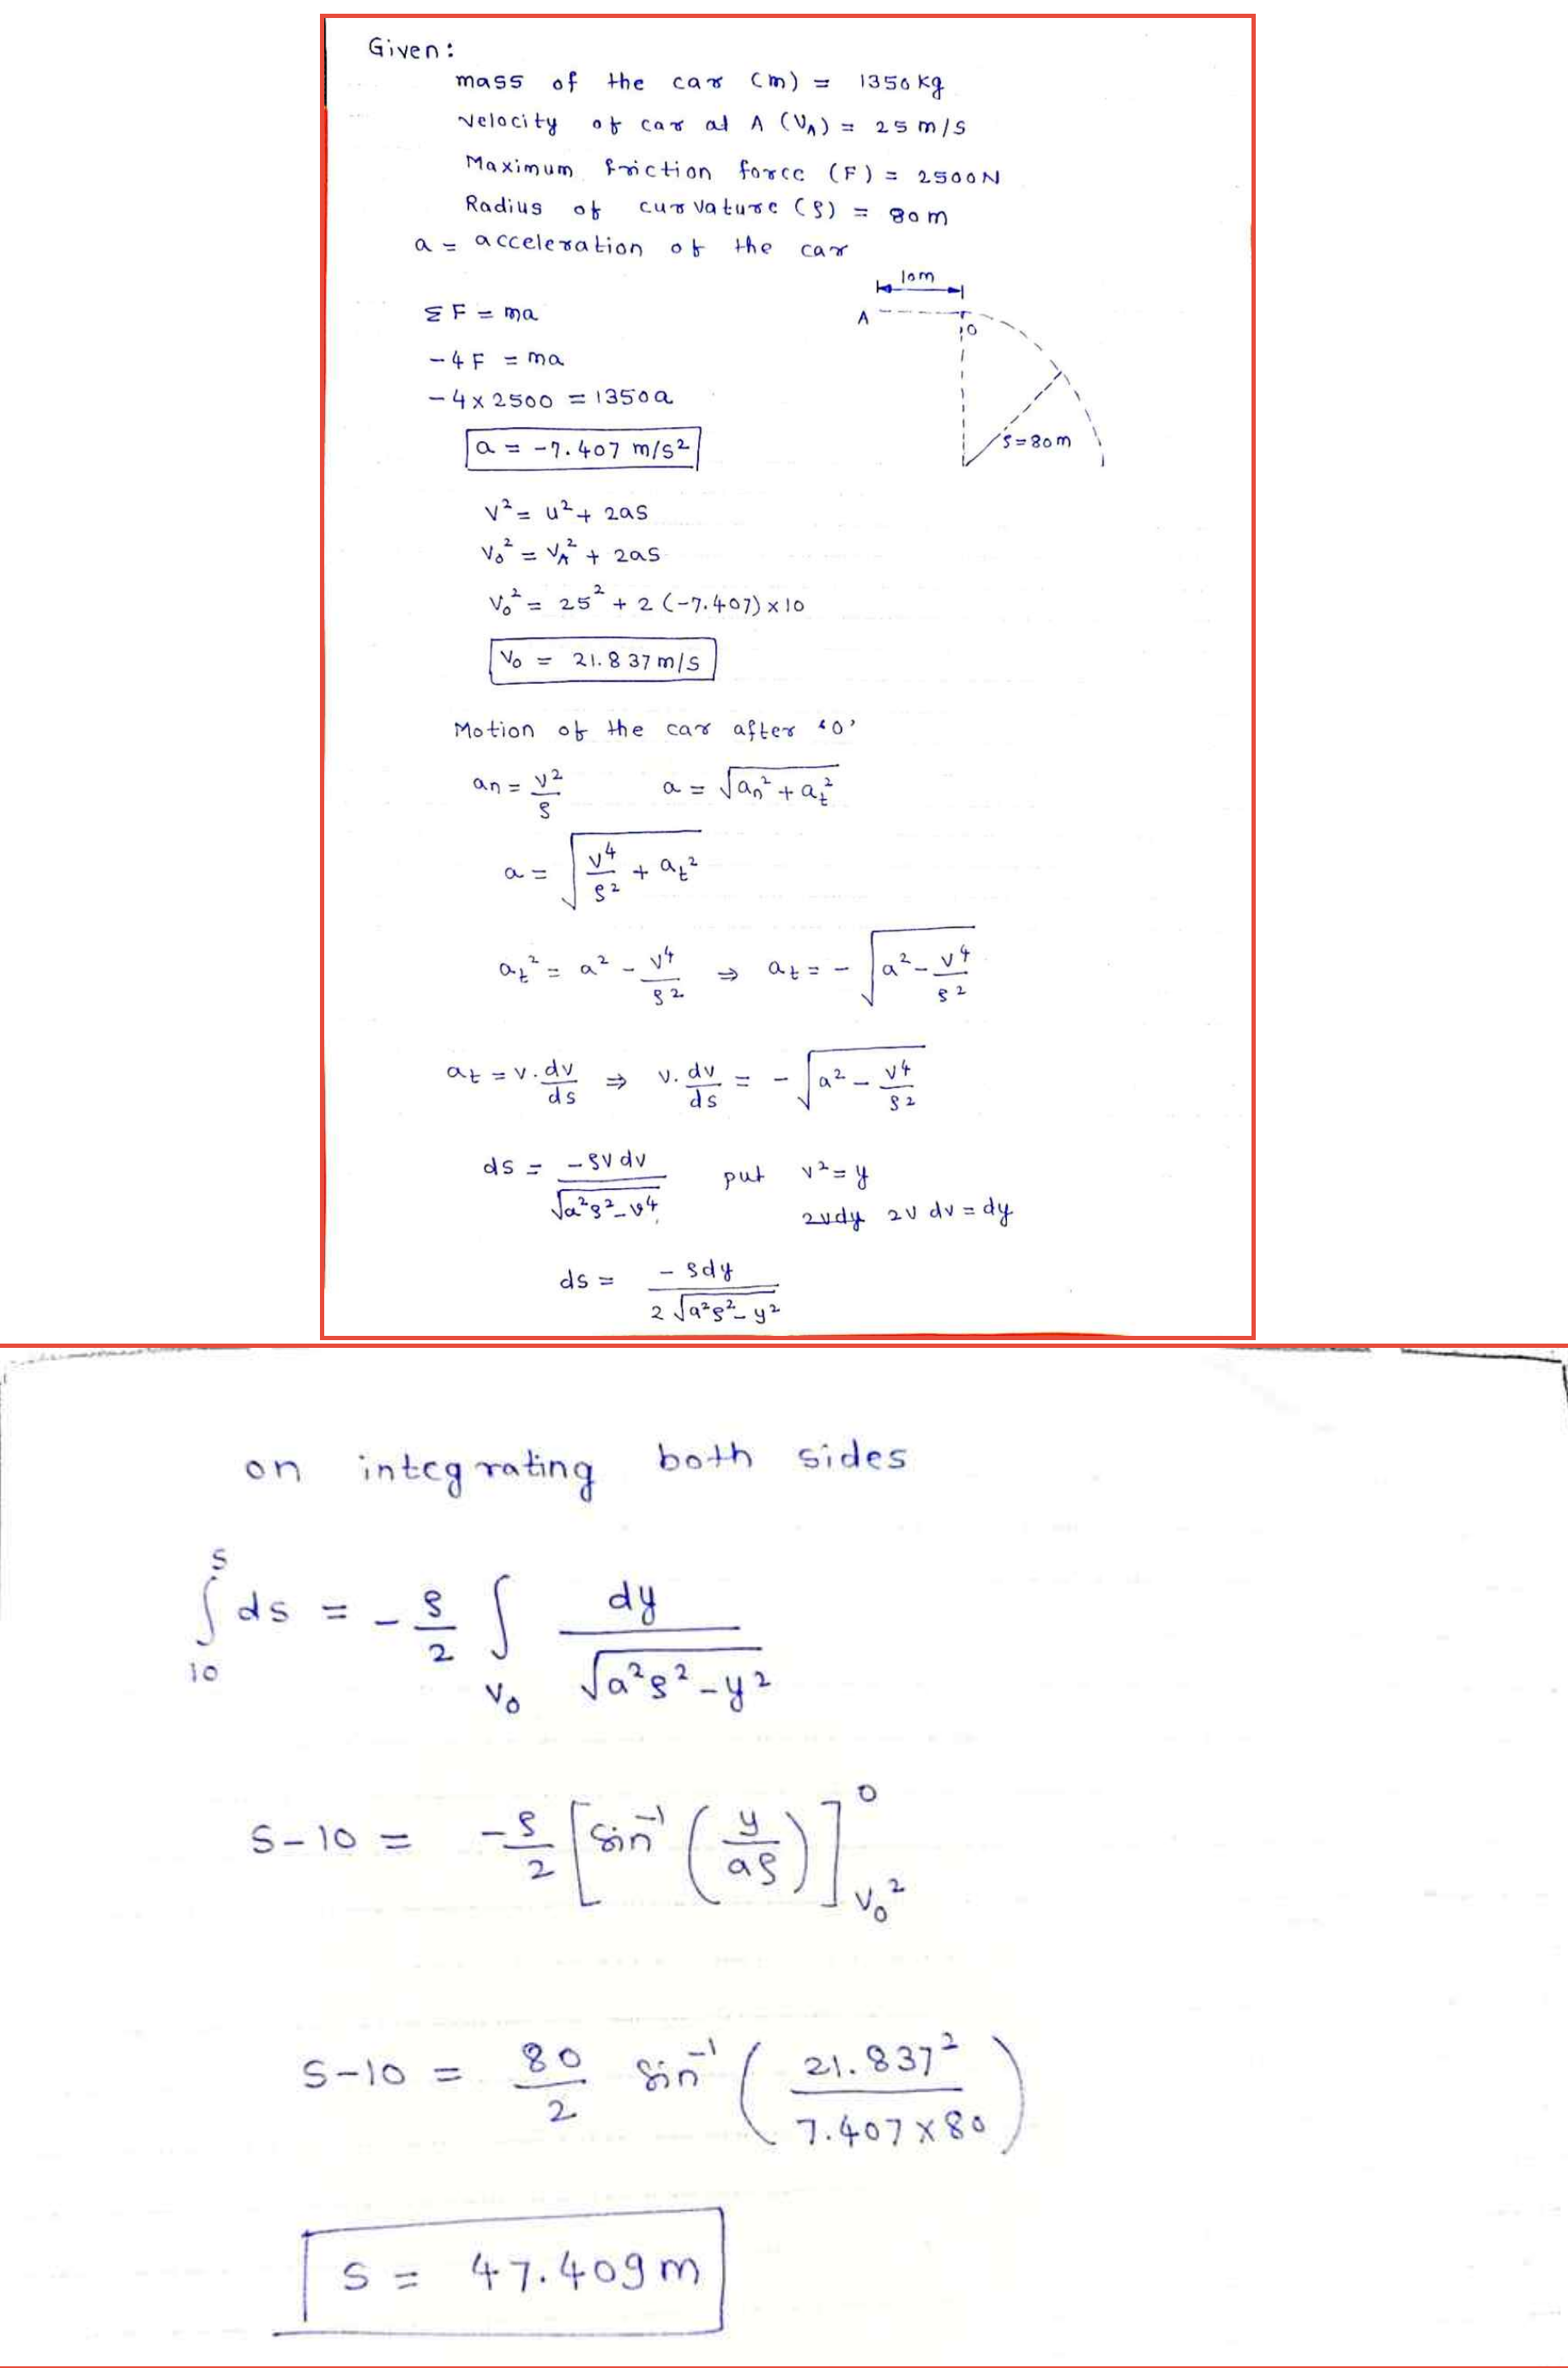 Given:
mass of the car (m) = 1350 kg
velocity of car at A (VA) = 25 m/s
Maximum friction force (F) = 2500N
Radius of curvature (ρ) = 80m
a = acceleration of the car
10m
A
O
ρ=80m
ΣF = ma
-4F = ma
-4×2500 = 1350a
a = -7.407 m/s²
v² = u² + 2as
v₀² = vA² + 2as
v₀² = 25² + 2(-7.407)×10
v₀ = 21.837 m/s
Motion of the car after 'O'
an = v²/ρ a = √(an² + at²)
a = √(v⁴/ρ² + at²)
at² = a² - v⁴/ρ² ⇒ at = -√(a² - v⁴/ρ²)
at = v.dv/ds ⇒ v.dv/ds = -√(a² - v⁴/ρ²)
ds = -ρv dv/√(a²ρ² - v⁴) put v² = y
2vdy 2v dv = dy
ds = -ρdy/2√(a²ρ² - y²)
on integrating both sides
∫₁₀^s ds = -ρ/2 ∫v₀ dy/√(a²ρ² - y²)
S-10 = -ρ/2 [sin⁻¹(y/aρ)]⁰v₀²
S-10 = 80/2 sin⁻¹(21.837²/7.407×80)
S = 47.409m